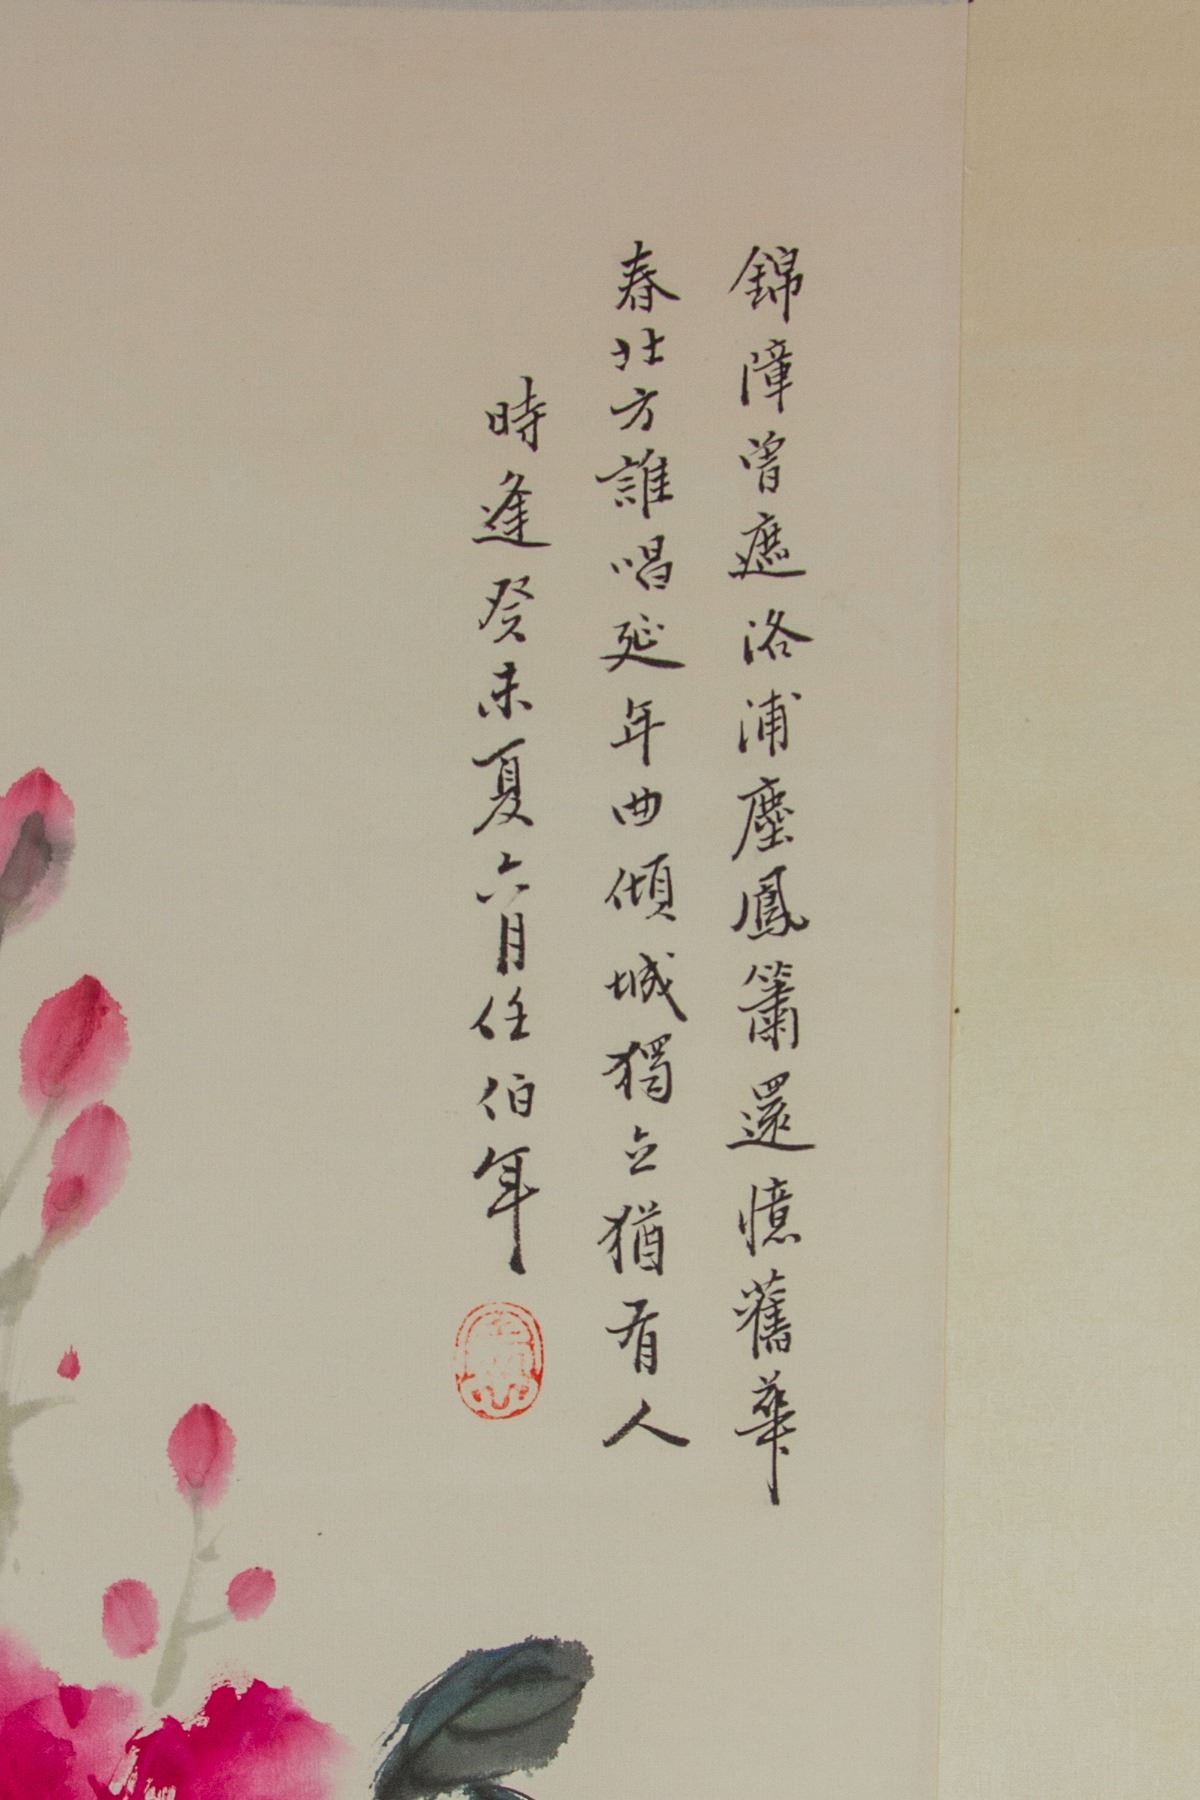 錦障曾遮洛浦塵鳳簫還憶舊華
春北方誰唱延年曲傾城獨立猶有人
時逢癸未夏六月任伯年